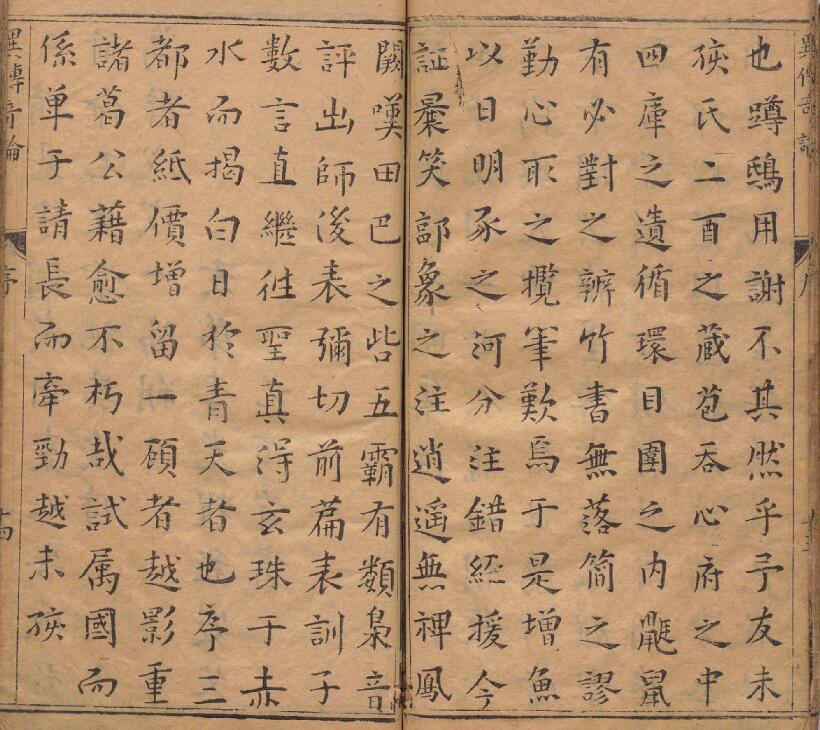 也蹲鴟用謝不其然乎予友未
孩氏二酉之蔵苞吞心府之中
四庫之遺循環目圍之内鼮鼠
有必對之辨竹書無落簡之謬
勤心取之攬筆歎焉于是增魚
以日明豕之河分注錯經援今
証彙笑郭象之注逍遥無裨鳳
闕嘆田巴之呰五霸有類梟音
評出師後表彌切前篇表訓子
數言直繼徃聖真得玄珠于赤
水而揭白日於青天者也序三
都者紙價增留一頋者越影重
諸葛公藉愈不朽哉試属國而
係单于請長而牽勁越未孩
序